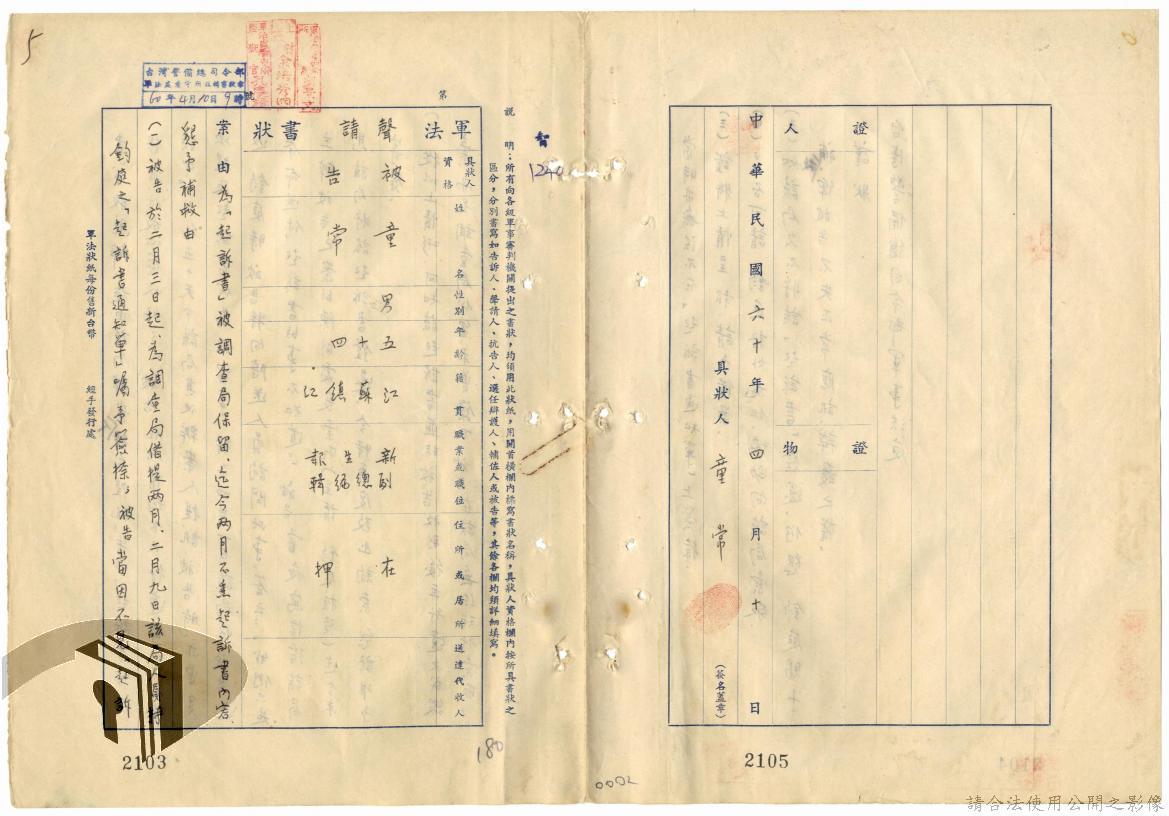 5
台灣警備總司令部
60年4月10日9時
第
號
說
明：所有向各級軍事審判機關提出之書狀，均須用此狀紙，用關首橫欄內標寫書狀名稱，具狀人資格欄內按所具書狀之
區分，分別書寫如告訴人、聲請人、抗告人、選任辯護人、輔佐人或被告等，其餘各欄均須詳細填寫。
智
1240
軍法
聲請
書狀
具狀人
資格
姓名
性別
年齡
籍貫
職業或職位
住所或居所
送達代收人
被告
童常
男
五十四
江蘇鎮江
新生報
副總編輯
在押
案由為「起訴書」被調查局保留，迄今兩月不悉起訴書內容，
懇予補救由
(一)被告於二月三日起，為調查局借提兩月，二月九日該局人員持
鈞庭之「起訴書通知單」囑予簽捺，被告當因不見起訴
軍法狀紙每份售新台幣
經手發行處
2103
180
0002
證人
證物
中華民國六十年四月十日
具狀人 童常
(簽名蓋章)
2105
請合法使用公開之影像